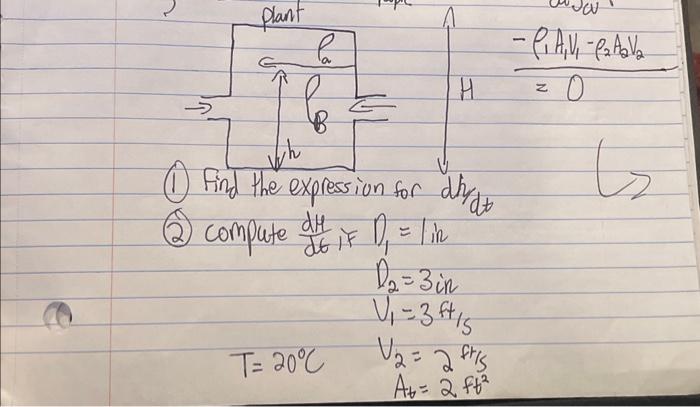 plant
ρa
ρB
h
H
- ρ₁A₁V₁ - ρ₂A₂V₂
= 0
① Find the expression for dh/dt
② compute dH/dt if D₁ = 1 in
D₂ = 3 in
V₁ = 3 ft/s
T = 20°C
V₂ = 2 ft/s
At = 2 ft²